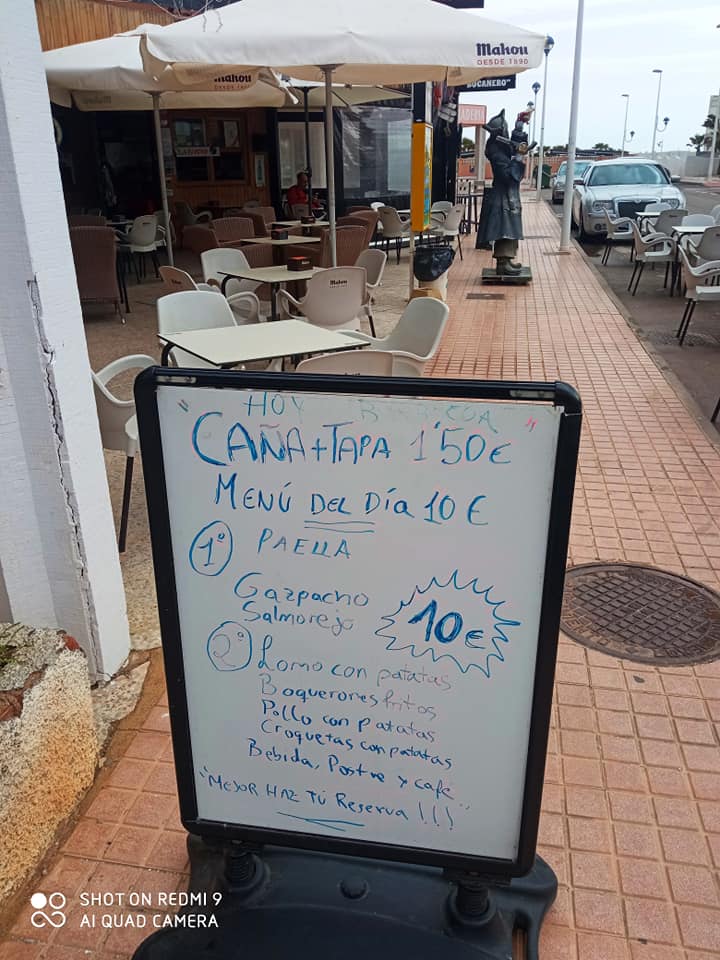 Mahou
DESDE 1890
Mahou
BUCANERO"
Mahou
" HOY BARBACOA "
CAÑA+TAPA 1'50€
MENÚ DEL DÍA 10 €
1º PAELLA
Gazpacho
Salmorejo
10€
2º Lomo con patatas
Boquerones fritos
Pollo con patatas
Croquetas con patatas
Bebida, Postre y café..
"MEJOR HAZ TÚ Reserva !!!
SHOT ON REDMI 9
AI QUAD CAMERA